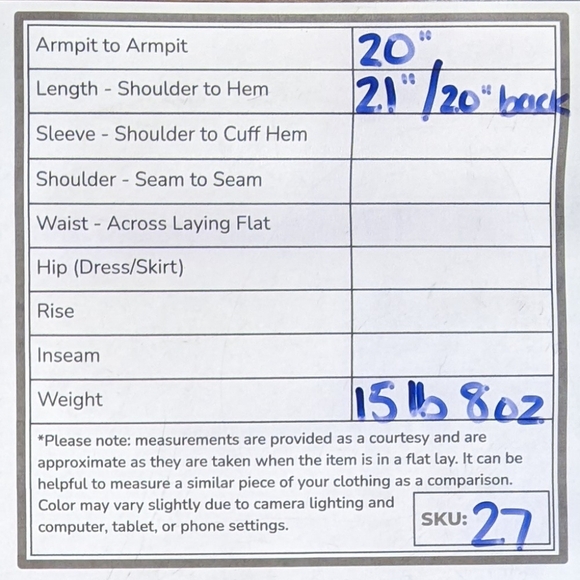 Armpit to Armpit 20"
Length - Shoulder to Hem 21"/20" back
Sleeve - Shoulder to Cuff Hem
Shoulder - Seam to Seam
Waist - Across Laying Flat
Hip (Dress/Skirt)
Rise
Inseam
Weight 15 lb 8oz
*Please note: measurements are provided as a courtesy and are
approximate as they are taken when the item is in a flat lay. It can be
helpful to measure a similar piece of your clothing as a comparison.
Color may vary slightly due to camera lighting and
computer, tablet, or phone settings.
SKU: 27